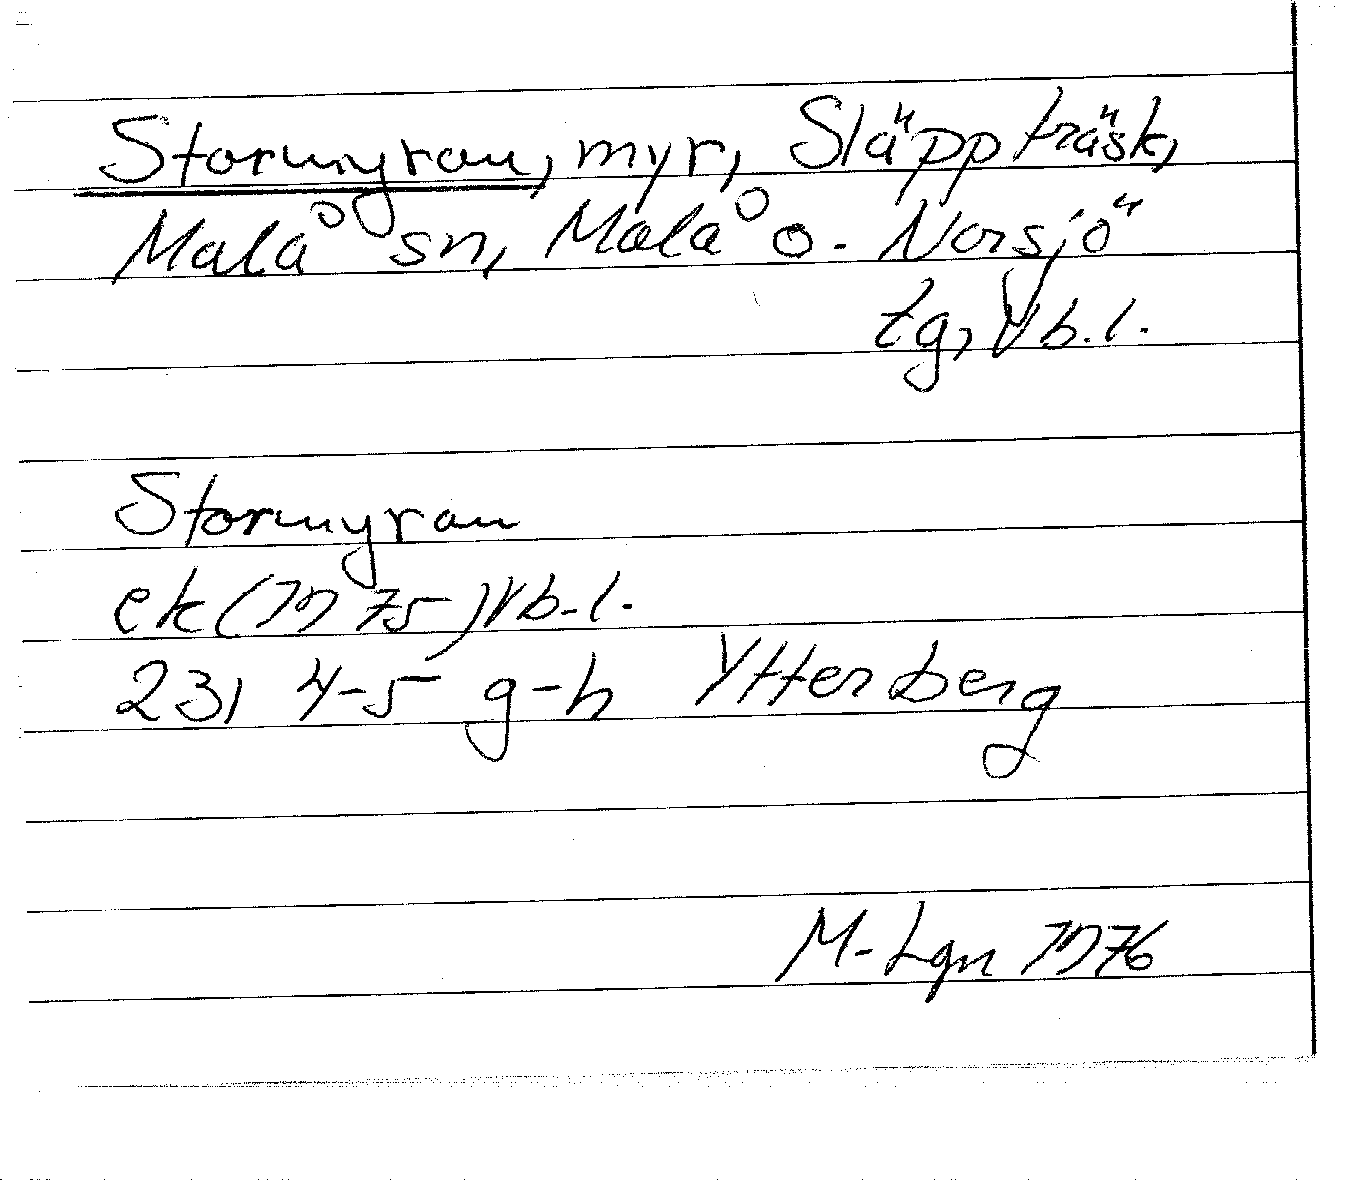 Stormyran, myr, Släppträsk,
Malå sn, Malå o. Norsjö
tg, Vb.l.
Stormyran
ek (1975) Vb.l.
231 4-5 g-h Ytterberg
M-Lgn 1976